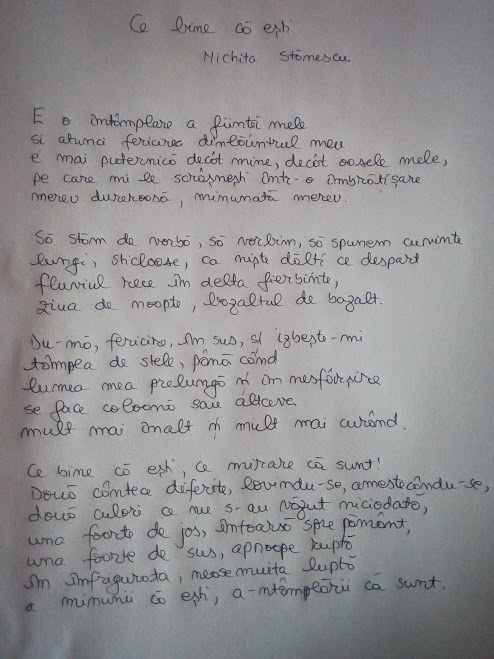 Ce bine că ești
Nichita Stănescu
E o întâmplare a ființei mele
si atunci fericirea dinlăuntrul meu
e mai puternică decât mine, decât oasele mele,
pe care mi le scrâșnești într-o îmbrățișare
mereu dureroasă, minunată mereu.
Să stăm de vorbă, să vorbim, să spunem cuvinte
lungi, sticloase, ca niște dălți ce despart
fluviul rece în delta fierbinte,
ziua de noapte, bazaltul de bazalt.
Du-mă, fericire, în sus, și izbește-mi
tâmpla de stele, până când
lumea mea prelungă și în nesfârșire
se face coloană sau altceva
mult mai înalt și mult mai curând.
Ce bine că ești, ce mirare că sunt!
Două cântece diferite, lovindu-se, amestecându-se,
două culori ce nu s-au văzut niciodată,
una foarte de jos, întoarsă spre pământ,
una foarte de sus, aproape ruptă
în înfrigurata, neasemuita luptă
a minunii că ești, a-ntâmplării că sunt.